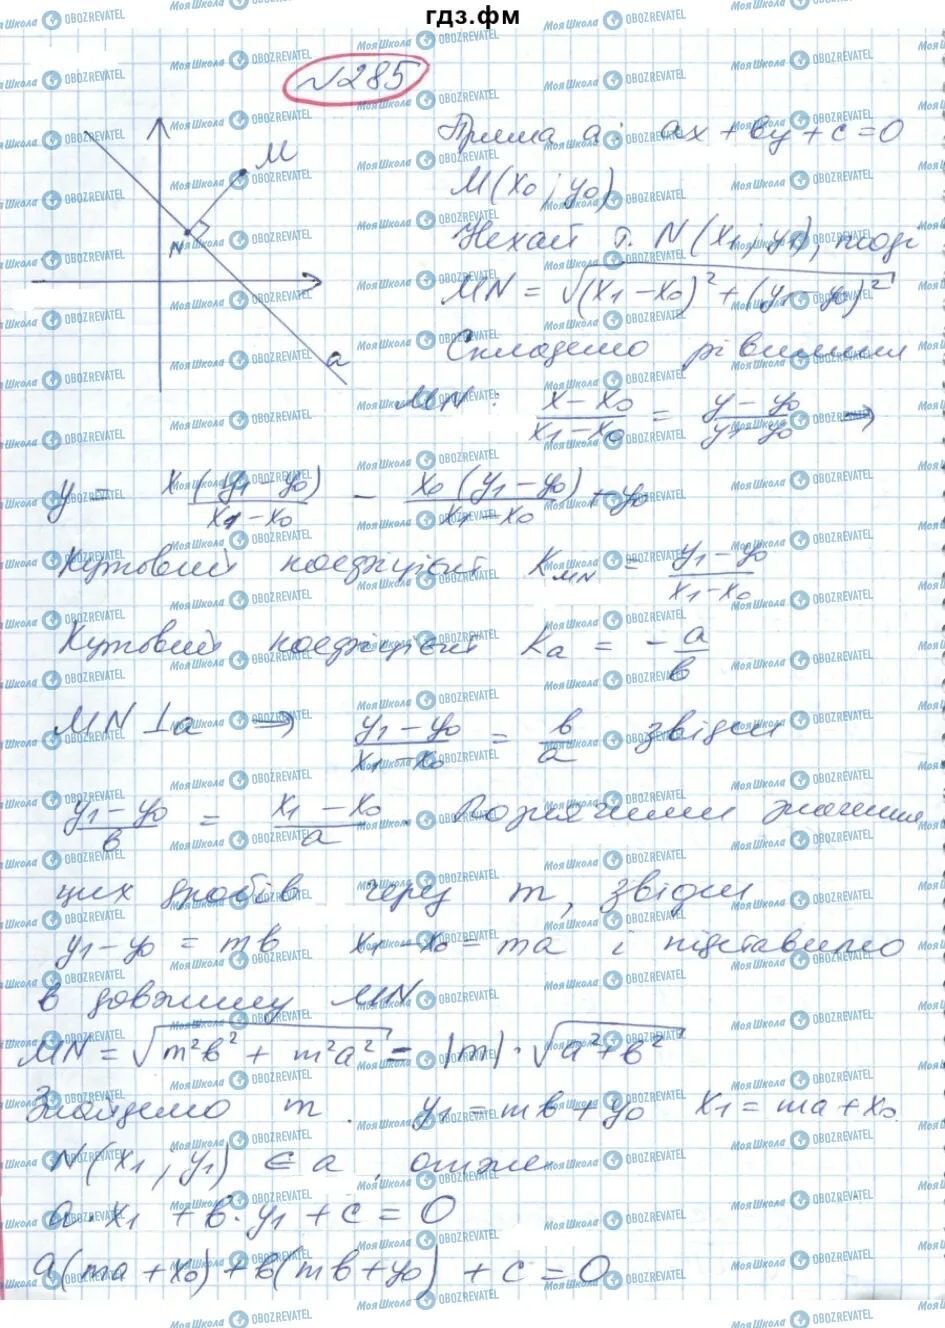 гдз.фм
№285
Пряма a: ax + by + c = 0
M(x₀; y₀)
Нехай т. N(x₁; y₁), тоді
MN = √((x₁ - x₀)² + (y₁ - y₀)²)
Складемо рівняння
MN: (x - x₀)/(x₁ - x₀) = (y - y₀)/(y₁ - y₀) ⟹
M
N
a
y = x(y₁ - y₀)/(x₁ - x₀) - x₀(y₁ - y₀)/(x₁ - x₀) + y₀
Кутовий коефіцієнт K_MN = (y₁ - y₀)/(x₁ - x₀)
Кутовий коефіцієнт Kₐ = - a/b
MN ⊥ a ⟹ (y₁ - y₀)/(x₁ - x₀) = b/a звідки
(y₁ - y₀)/b = (x₁ - x₀)/a. Позначимо значення
цих дробів через m, звідки
y₁ - y₀ = mb x₁ - x₀ = ma і підставимо
в довжину MN
MN = √(m²b² + m²a²) = |m|·√(a² + b²)
Знайдемо m. y₁ = mb + y₀ x₁ = ma + x₀.
N(x₁; y₁) ∈ a, отже
a·x₁ + b·y₁ + c = 0
a(ma + x₀) + b(mb + y₀) + c = 0
МояШкола OBOZREVATEL